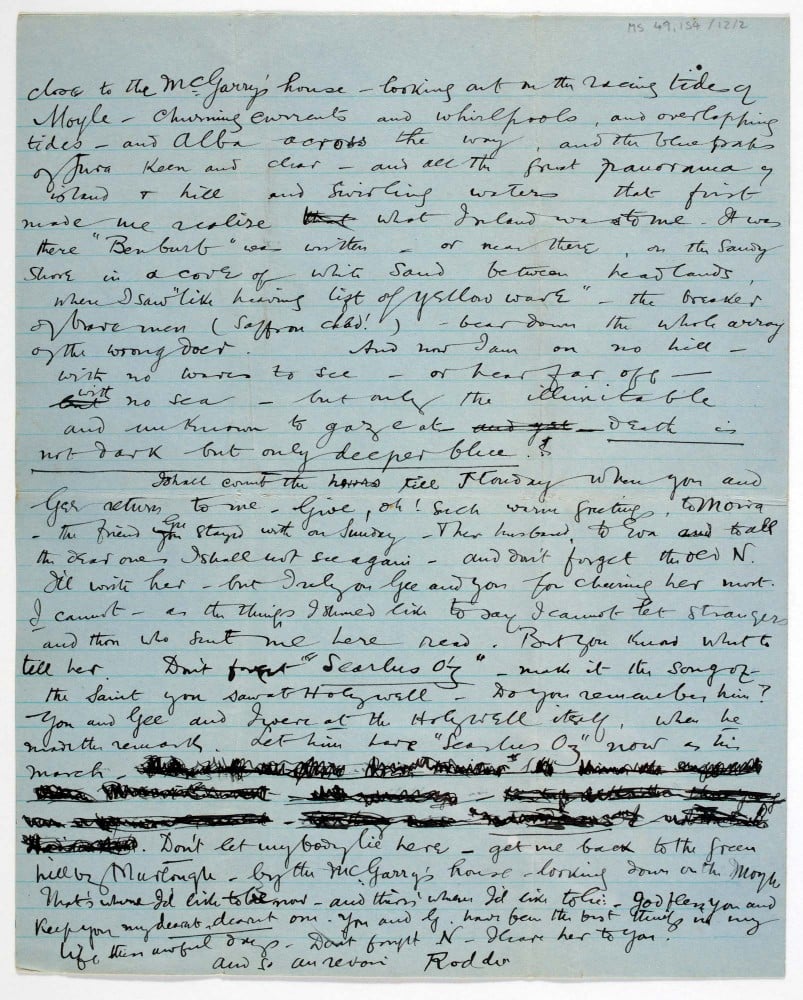 MS 49,154/12/2
close to the McGarry's house – looking out on the racing tides of
Moyle – churning currents and whirlpools, and overlapping
tides – and Alba across the way, and the blue peaks
of Jura keen and clear – and all the great panorama of
island & hill and swirling waters that first
made me realize that what Ireland was to me. It was
there "Benburb" was written – or near there, on the sandy
shore in a cove of white sand between headlands,
where I saw "like heaving lift of yellow wave" – the breaker
of brave men (Saffron clad!) – bear down the whole array
of the wrong doer. And now I am on no hill –
with no waves to see – or hear far off –
but with no sea – but only the illimitable
and unknown to gaze at and yet – Death is
not dark but only deeper blue.
I shall count the hours till Monday when you and
Gee return to me – Give, oh! such warm greetings, to Moira
– the friend Gee stayed with on Sunday – & her husband, to Eva and to all
the dear ones I shall not see again – and don't forget the old N.
I'll write her – but I rely on Gee and you for cheering her most.
I cannot – as the things I should like to say I cannot let strangers
and those who sent me here read. But you know what to
tell her. Don't forget "Searlus Og" – make it the song of
the Saint you saw at Holywell – Do you remember him?
You and Gee and I were at the Holywell itself, when he
made the remark. Let him have "Searlus Og" now as his
march –
. Don't let my body lie here – get me back to the green
hill by Murlough – by the McGarry's house – looking down on the Moyle
That's where I'd like to be now – and that's where I'd like to lie – God bless you and
keep you my dearest, dearest one. You and G. have been the best things in my
life these awful days – Don't forget N – I leave her to you.
and so au revoir Roddie